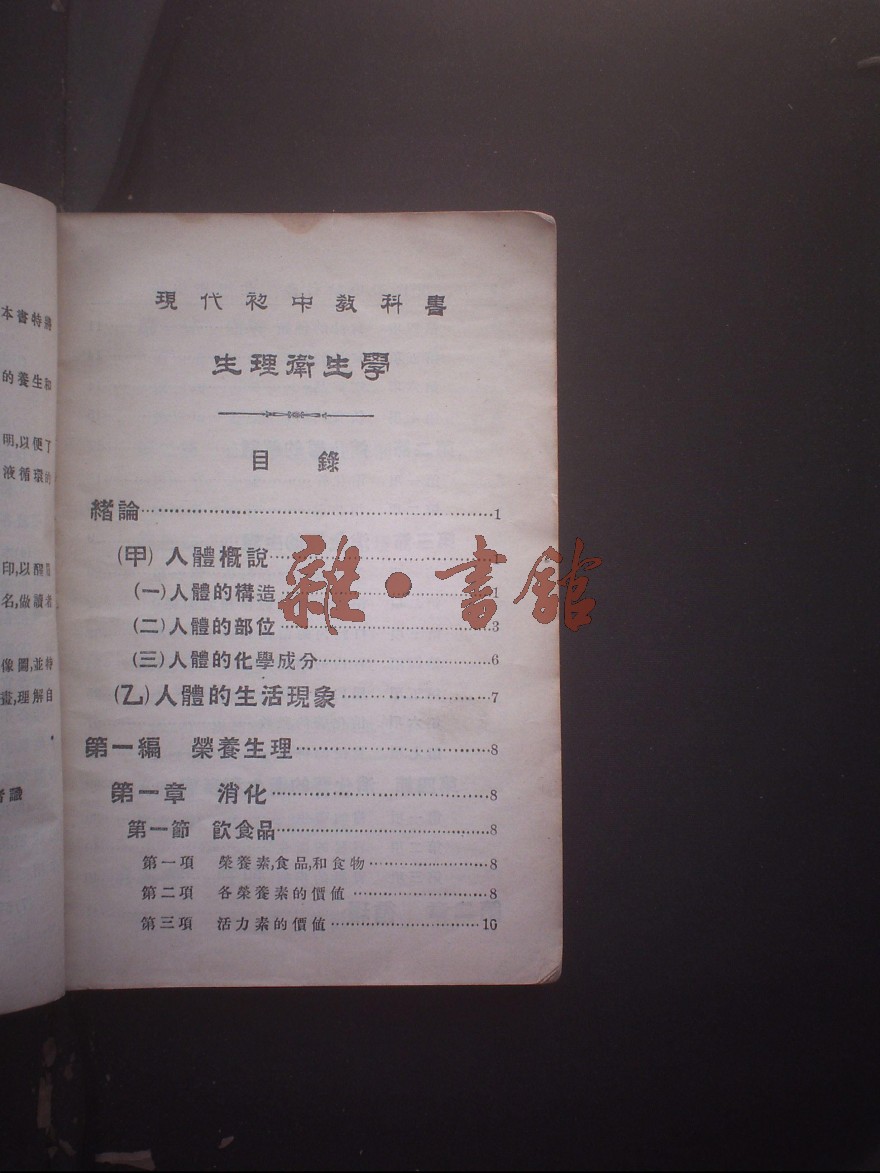 本書特將
的養生和
明,以便了
液循環的
印,以醒眉
名,做讀者
像圖,並特
畫,理解自
者識
現代初中教科書
生理衛生學
目錄
緒論……1
(甲)人體概說……
(一)人體的構造……1
(二)人體的部位……3
(三)人體的化學成分……6
(乙)人體的生活現象……7
第一編 榮養生理……8
第一章 消化……8
第一節 飲食品……8
第一項 榮養素,食品,和食物……8
第二項 各榮養素的價値……8
第三項 活力素的價値……10
雜·書館